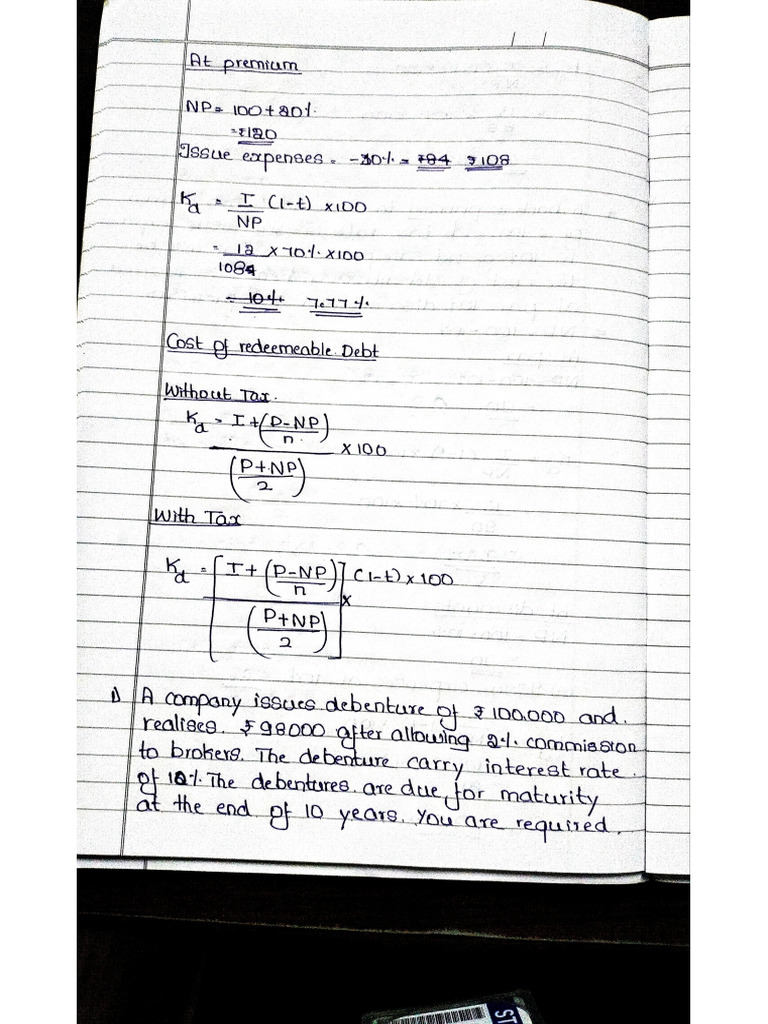 At premium
NP = 100 + 20%
= ₹120
Issue expenses = -10% = ₹84 ₹108
Kd = I/NP (1-t) × 100
= 12/1084 × 70% × 100
= 10% 7.77%
Cost of redeemeable Debt
Without Tax.
Kd = I + (P-NP/n) / (P+NP/2) × 100
With Tax
Kd = [I + (P-NP/n) / (P+NP/2)] × (1-t) × 100
1) A company issues debenture of ₹ 100.000 and.
realises. ₹98000 after allowing 2%. commission
to brokers. The debenture carry interest rate.
of 10% The debentures. are due for maturity
at the end of 10 years. You are required.
ST